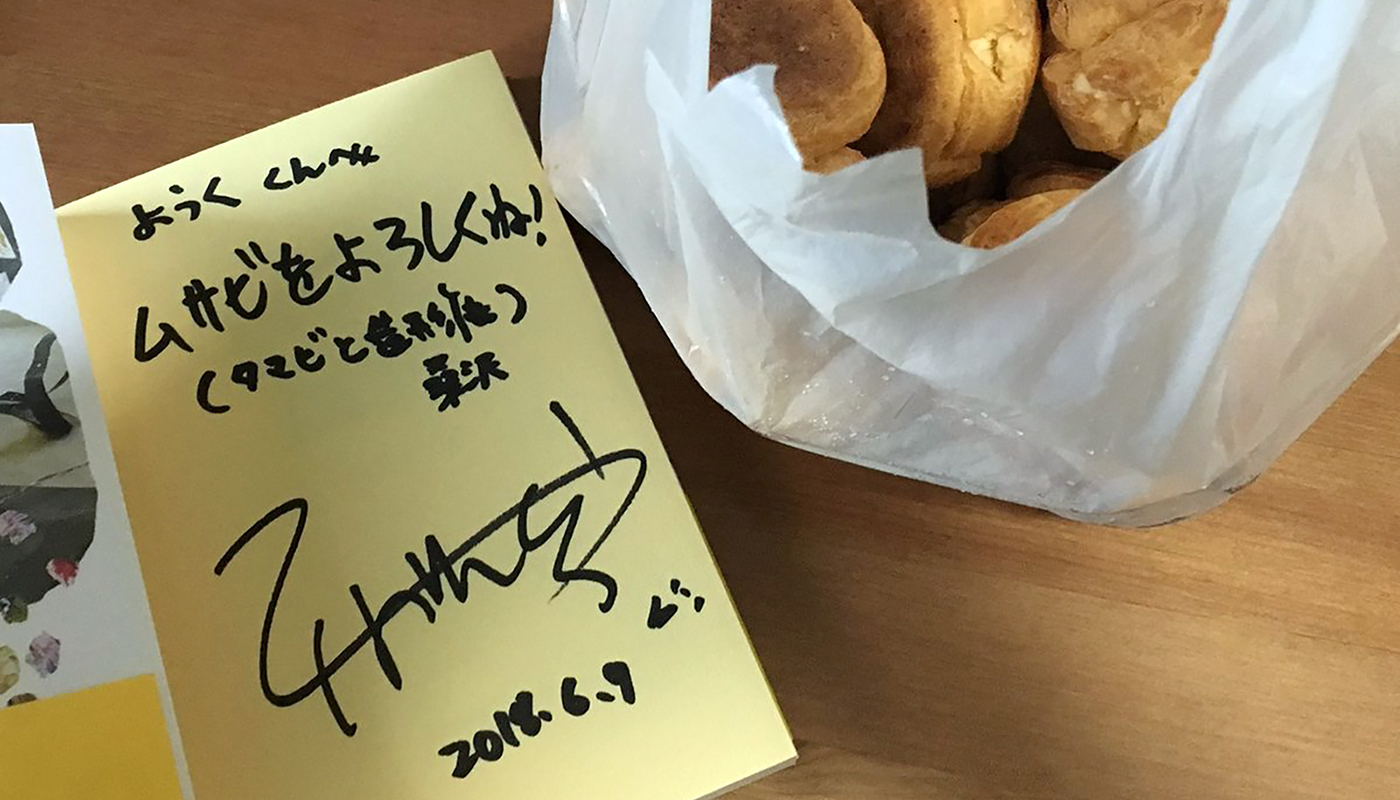 ようく くんへ
ムサビをよろしくね!
(タマビと造形他)
桑沢
2018.6.9